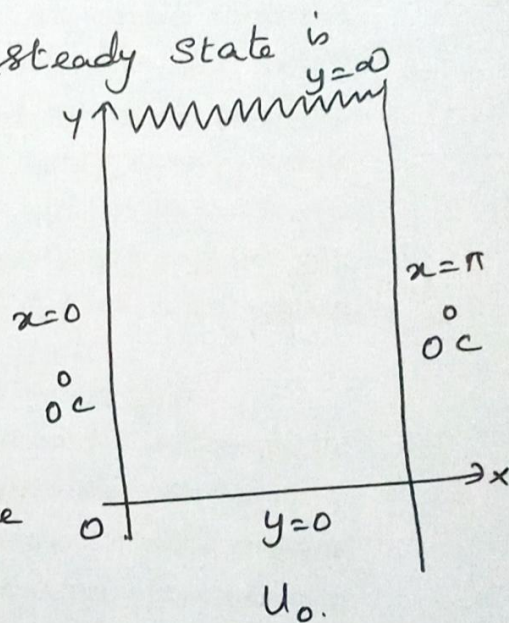 steady state is
y=∞
y
x=π
x=0
0°C
0°C
e
0
y=0
x
U₀.